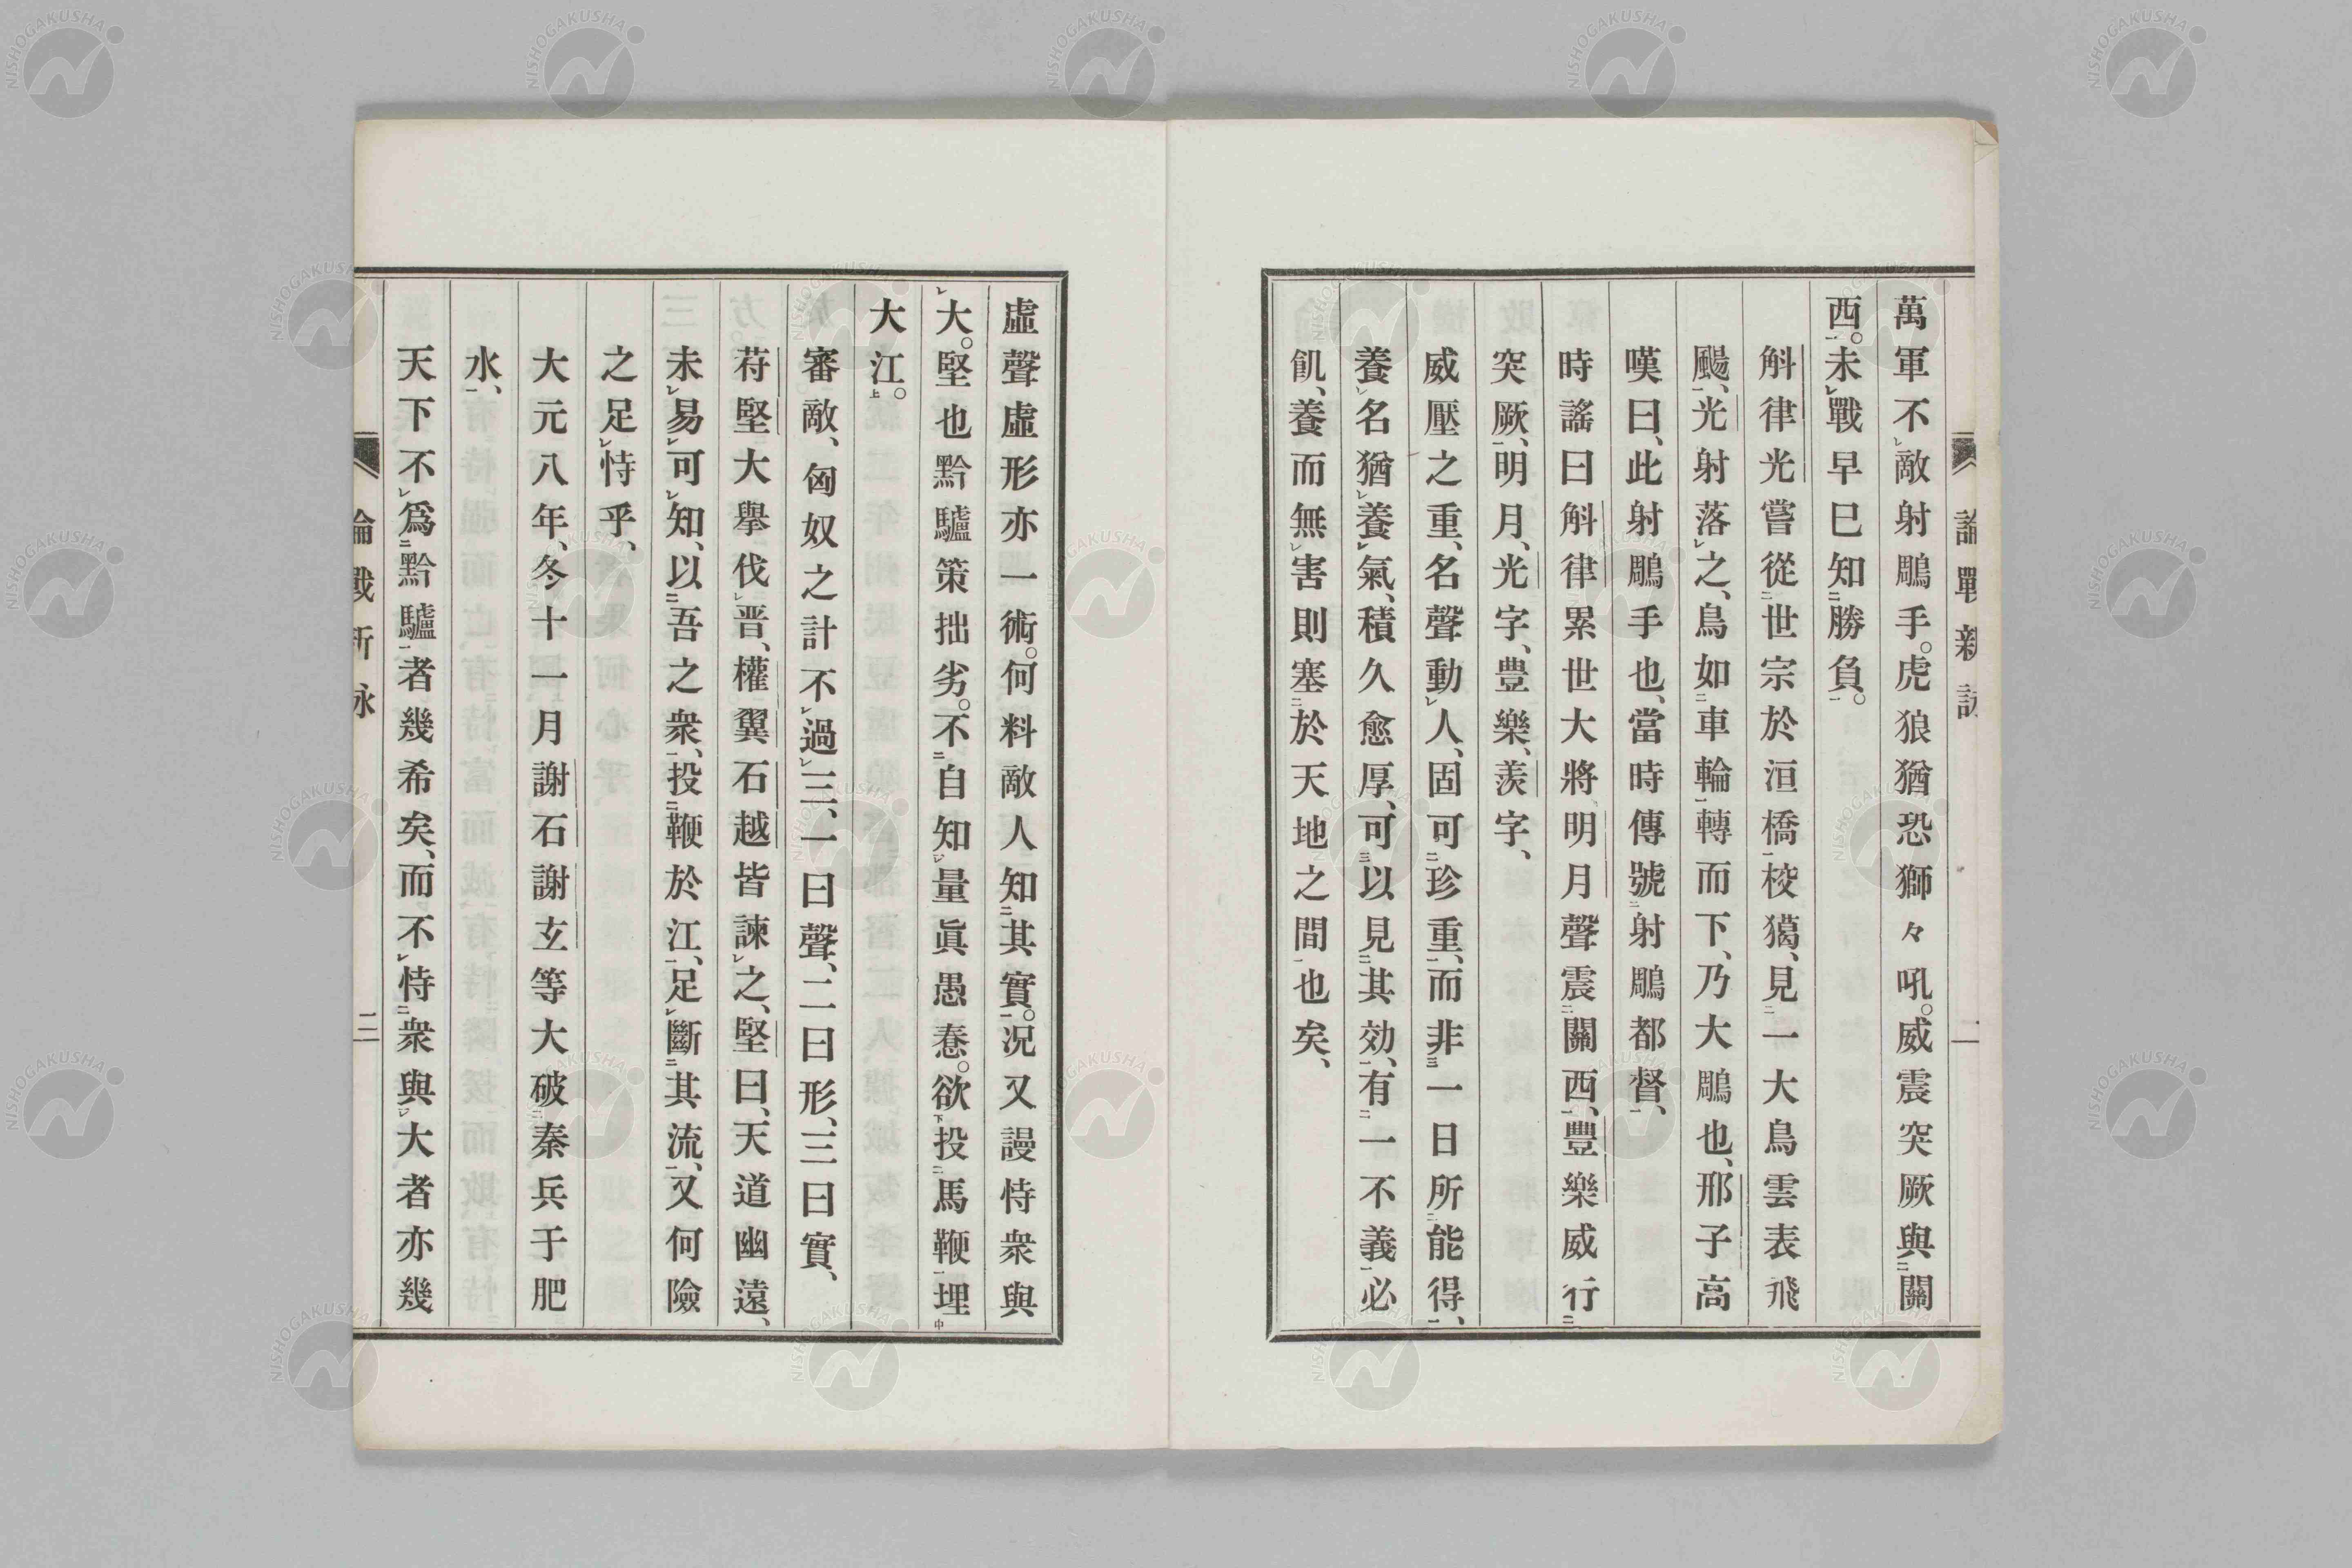 萬軍不敵射鵰手。虎狼猶恐獅々吼。威震突厥與關
西。未戰早已知勝負。
斛律光嘗從世宗於洹橋校獦、見一大鳥雲表飛
颺、光射落之、鳥如車輪轉而下、乃大鵰也、邢子高
嘆曰、此射鵰手也、當時傳號射鵰都督、
時謠曰斛律累世大將明月聲震關西、豐樂威行
突厥、明月、光字、豐樂、羨字、
威壓之重、名聲動人、固可珍重、而非一日所能得、
養名猶養氣、積久愈厚、可以見其効、有一不義必
飢、養而無害則塞於天地之間也矣、
論戰新詠
二
虛聲虛形亦一術。何料敵人知其實。況又謾恃衆與
大。堅也黔驢策拙劣。不自知量眞愚惷。欲投馬鞭埋
大江。
審敵、匈奴之計不過三、一曰聲、二曰形、三曰實、
苻堅大擧伐晋、權翼石越皆諫之、堅曰、天道幽遠、
未易可知、以吾之衆、投鞭於江、足斷其流、又何險
之足恃乎、
大元八年、冬十一月謝石謝玄等大破秦兵于肥
水、
天下不爲黔驢者幾希矣、而不恃衆與大者亦幾
論戰新詠
三
NISHOGAKUSHA